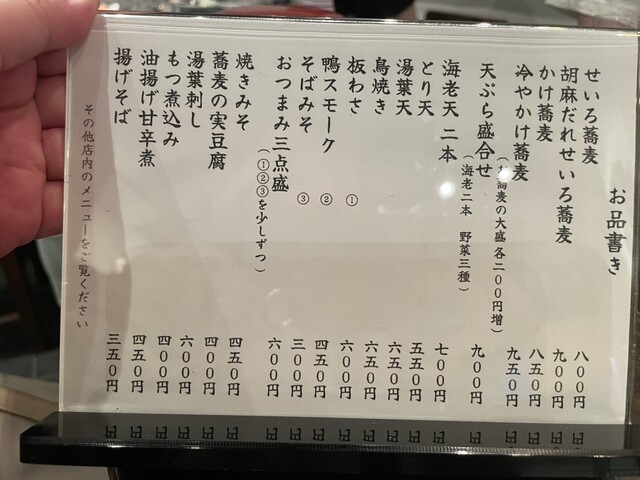 お品書き
せいろ蕎麦 八〇〇円
胡麻だれせいろ蕎麦 九〇〇円
かけ蕎麦 八五〇円
冷やかけ蕎麦 九五〇円
(お蕎麦の大盛 各二〇〇円増)
天ぷら盛合せ 九〇〇円
(海老二本 野菜三種)
海老天 二本 七〇〇円
とり天 五五〇円
湯葉天 六五〇円
鳥焼き 六五〇円
板わさ ① 六〇〇円
鴨スモーク ② 四五〇円
そばみそ ③ 三〇〇円
おつまみ三点盛 六〇〇円
(①②③を少しずつ)
焼きみそ 四五〇円
蕎麦の実豆腐 四〇〇円
湯葉刺し 六〇〇円
もつ煮込み 四〇〇円
油揚げ甘辛煮 四五〇円
揚げそば 三五〇円
その他店内のメニューをご覧ください